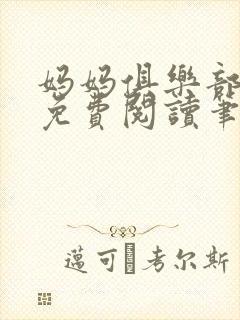 妈妈俱樂部
免費閱讀筆
邁可·考尔斯